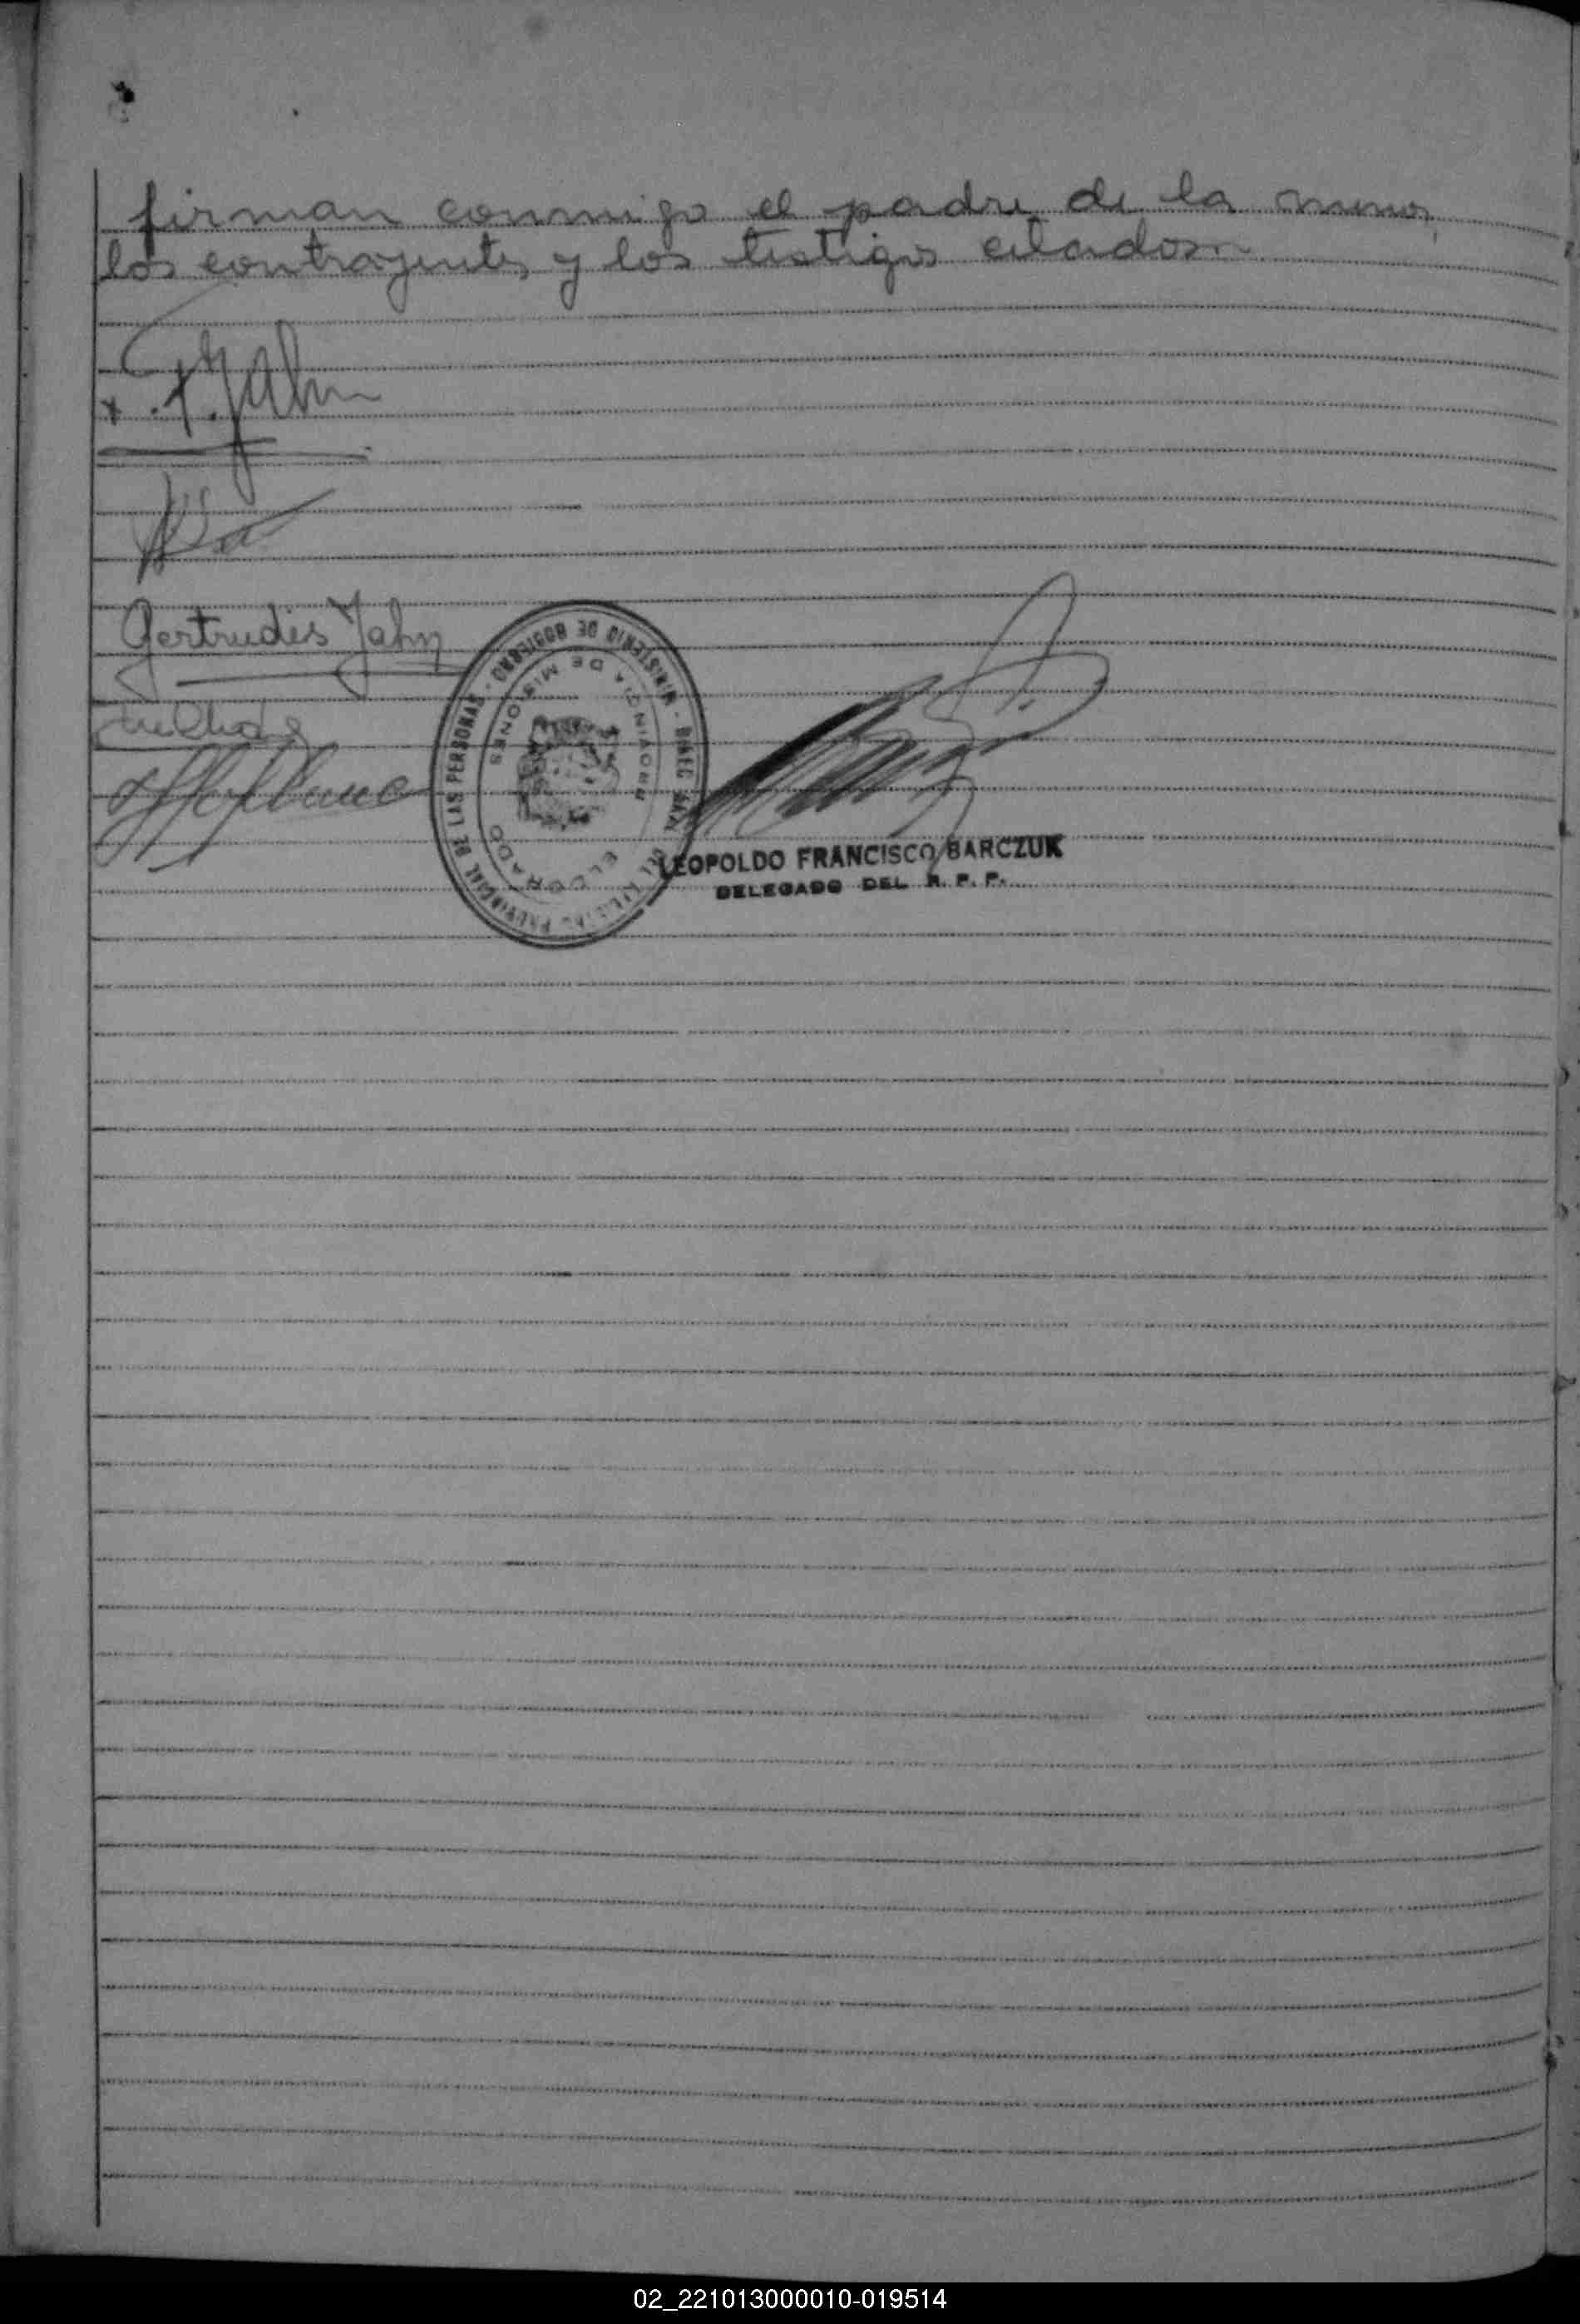 firman conmigo el padre de la menor,
los contrayentes y los testigos citados
Jahn
Gertrudis Jahn
MINISTERIO DE GOBIERNO
PROVINCIAL DE LAS PERSONAS
PROVINCIA DE MISIONES
ELDORADO
LEOPOLDO FRANCISCO BARCZUK
DELEGADO DEL R. P. P.
02_221013000010-019514